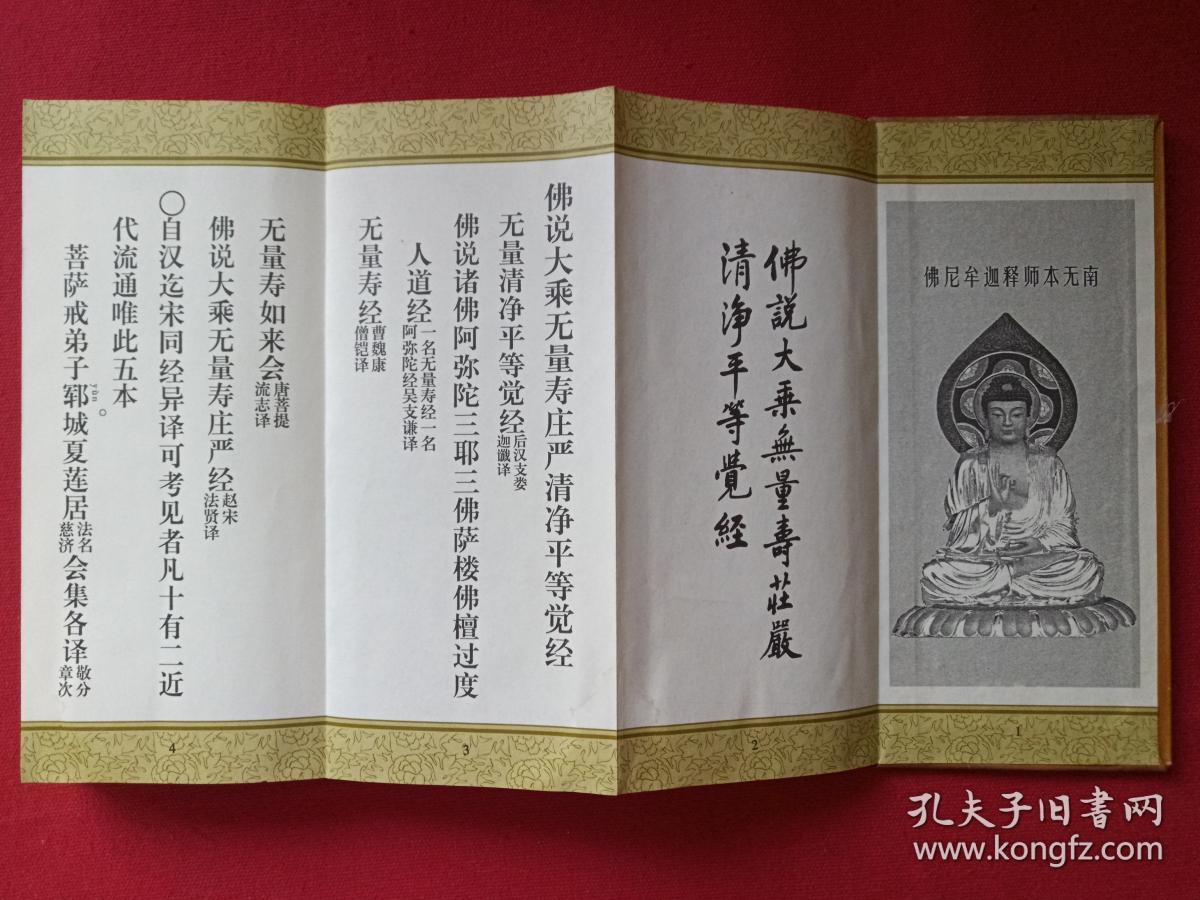 南无本师释迦牟尼佛
1
佛說大乘無量壽莊嚴
清淨平等覺經
2
佛说大乘无量寿庄严清净平等觉经
无量清净平等觉经后汉支娄迦谶译
佛说诸佛阿弥陀三耶三佛萨楼佛檀过度
人道经一名无量寿经一名阿弥陀经吴支谦译
无量寿经曹魏康僧铠译
3
无量寿如来会唐菩提流志译
佛说大乘无量寿庄严经赵宋法贤译
〇自汉迄宋同经异译可考见者凡十有二近
代流通唯此五本。
菩萨戒弟子郓yùn城夏莲居法名慈济会集各译敬分章次
4
孔夫子旧書网
www.kongfz.com